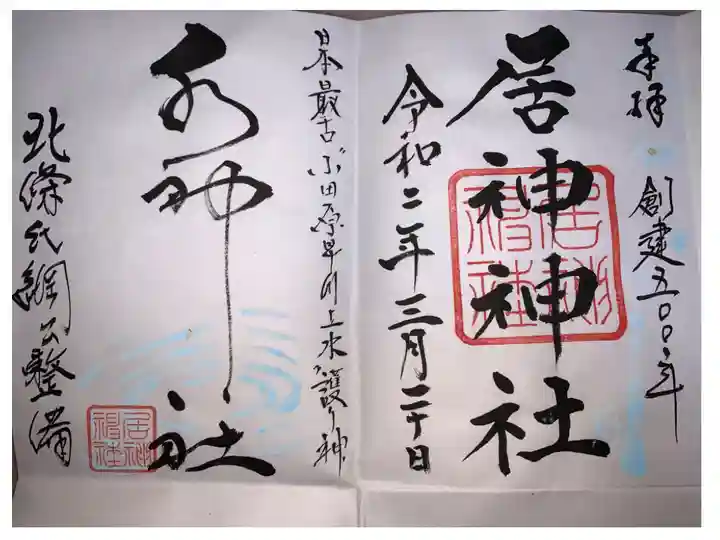 奉拝
創建五〇〇年
居神神社
令和二年三月二十日
日本最古小田原早川上水護り神
水神社
北條氏綱公整備
居神
神社